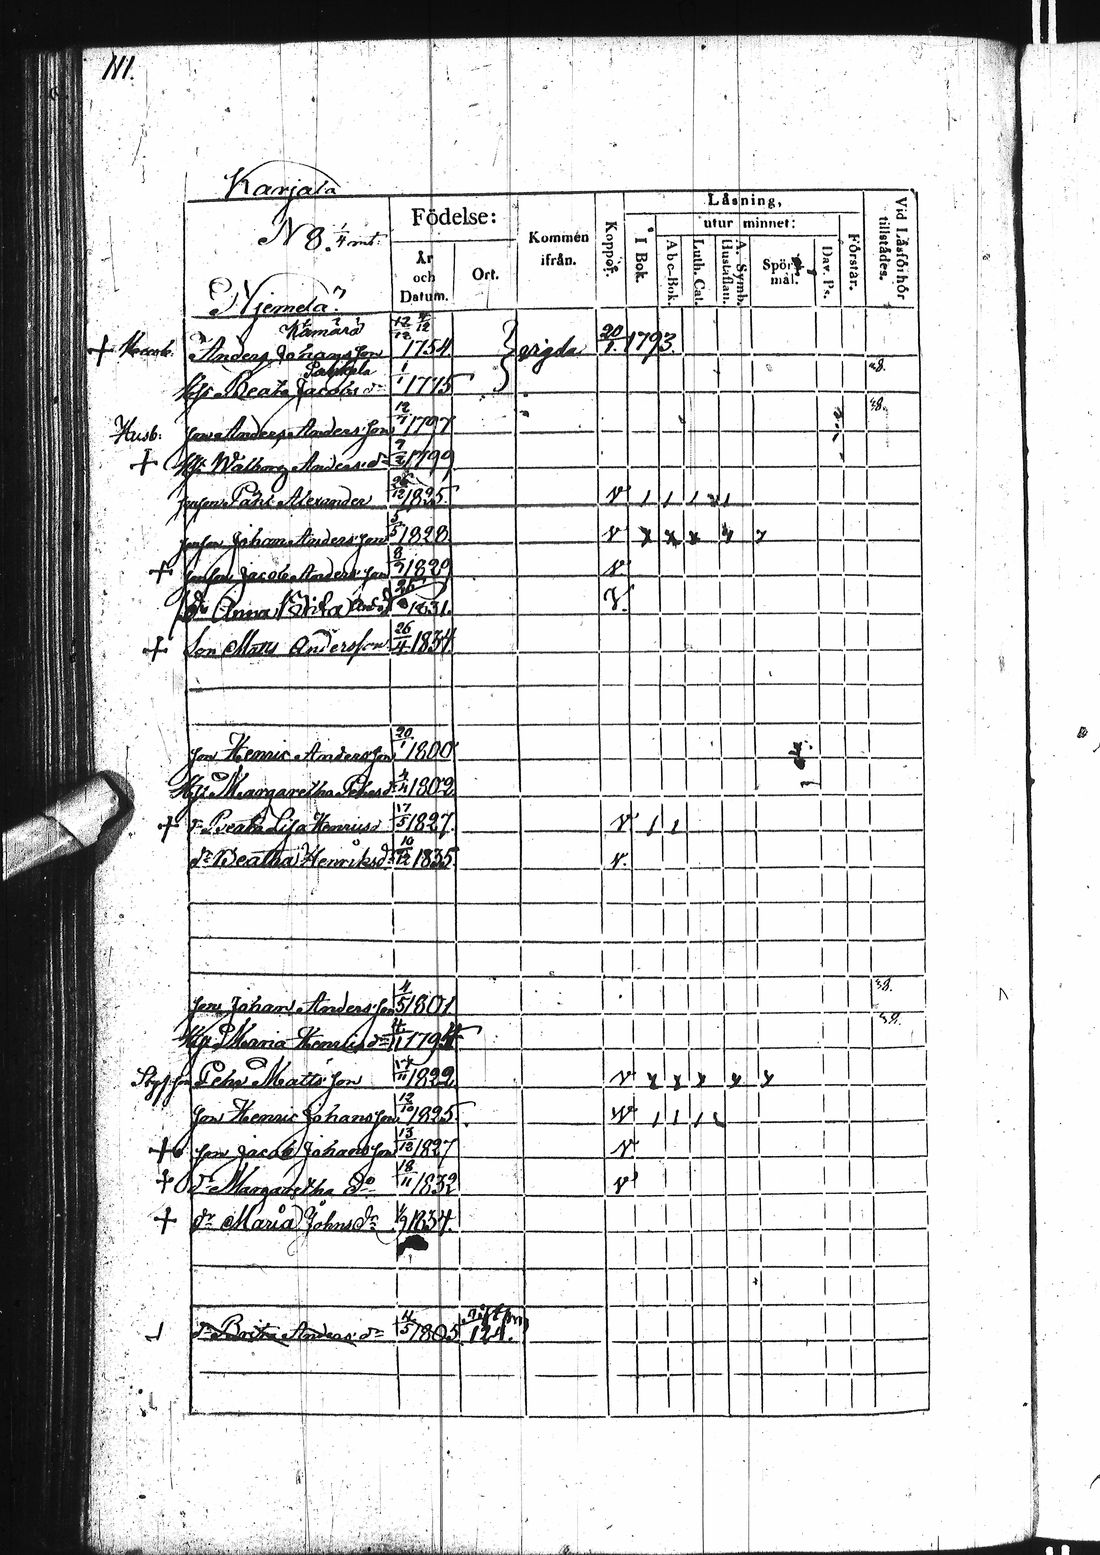 111.
Karjala
N 8. 1/4 mt.
Hjemelä
Födelse:
År och Datum.
Ort.
Kommen ifrån.
Koppor.
Läsning,
I Bok.
utur minnet:
Abc-Bok.
Luth. Cat.
A. Symb. Hustaflan.
Spörsmål.
Dav. Ps.
Förstår.
Vid Läsförhör tillstädes.
Kämärä 12/12
+ Anders Johansson 1754 vigda 20/1. 1793.
Hu Beata Jacobs dr 1/1 1775 38.
Husb. son Anders Andersson 12/7 1797 38.
+ Hu Walborg Anders dr 1799
sonson Pähr Alexander 26/12 1825 V 1 1 1 x 1
sonson Johan Andersson 5/5 1828 V x x x x x
+ sonson Jacob Andersson 8/9 1829 V
dr Anna Brita 1831. V.
+ Son Matts Andersson 26/4 1834
son Henric Andersson 20/1 1800
Hu Margaretha Pehrs d 4/4 1802
+ dr Beata Lisa Henricsd 17/5 1827. V 1 1
dr Beatha Henriksd. 10/12 1835. V.
son Johan Andersson 4/5 1801 38.
Hu Maria Henrics dr 4/11 38.
Styfson Pehr Mattsson 17/11 1822 V x x x x x
son Henric Johansson 12/10 1825 V 1 1 1
+ son Jacob Johansson 13/12 1827 V
+ dr Margaretha Do 18/11 1832 V
+ dr Maria Johns dr 1/9 1834.
dr Brita Anders dr 4/5 1805 124.